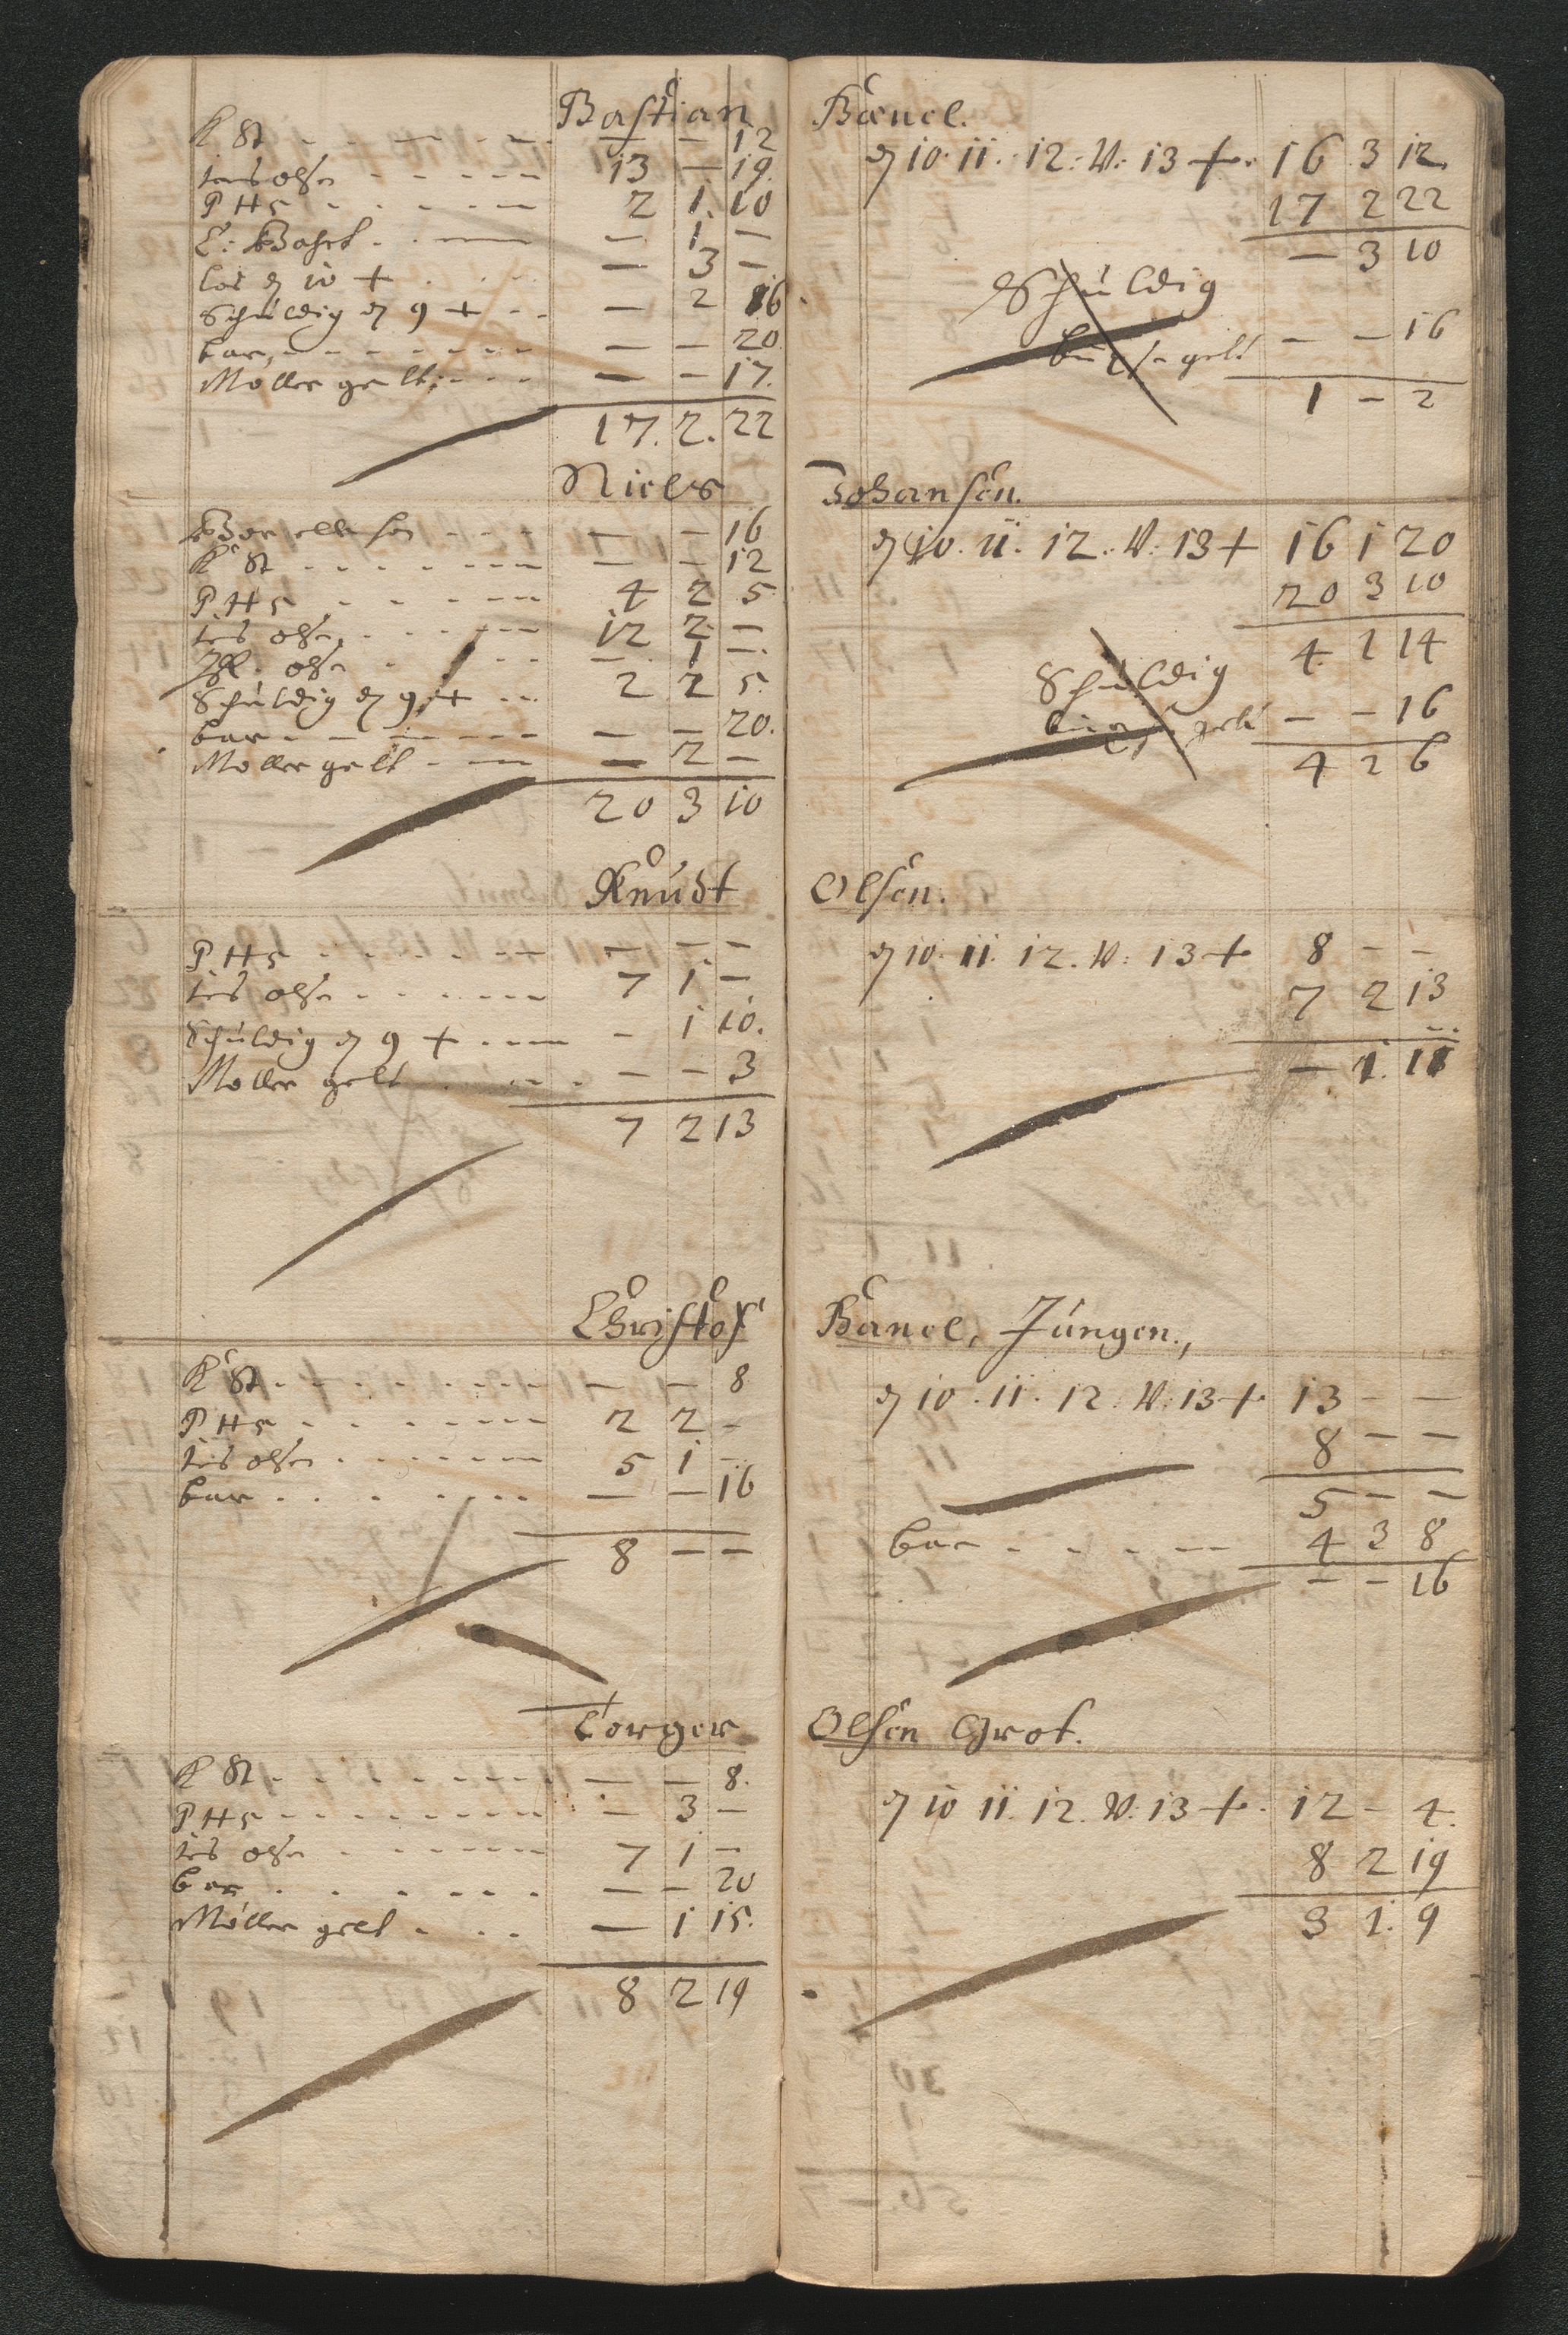 Bastian Banel.
K St - - 12
tes olsen 13 - 19.
P Hs 2 1. 10
- 1 -
10 + - 3 -
Schuldig 9 + - 2 16
bar, - - 20.
Möller gelt, - - 17.
17. 2. 22
10. 11. 12. V. 13 + 16 3 12
17 2 22
- 3 10
Schuldig
gelt - - 16
1 - 2
Niels Johansen.
- - 16
K St - - 12
P Hs 4 2 5
tes olsen 12 2 -
olsen - 1 -.
Schuldig 9 + 2 2 5.
bar - - 20.
Moller gelt - 2 -
20 3 10
10. 11. 12. V. 13 + 16 1 20
20 3 10
4. 1 14
Schuldig
gelt - - 16
4 2 6
Knudt Olsen.
P Hs - - -
tes olsen 7 1 -
Schuldig 9 + - 1 10.
Moller gelt - - 3
7 2 13
10. 11. 12. V. 13 + 8 - -
7 2 13
- 1. 11
Christof Banel, Jungen.,
K St - - 8
P Hs 2 2 -
tes olsen 5 1 -
bar - - 16
8 - -
10. 11. 12. V. 13 + 13 - -
8 - -
5 - -
bar 4 3 8
- - 16
Torger Olsen Grot.
K St - - 8.
P Hs - 3 -
tes olsen 7 1 -
bar - - 20
Möller gelt - 1 15.
8 2 19
10 11. 12. V. 13 + 12 - 4.
8 2 19
3 1. 9